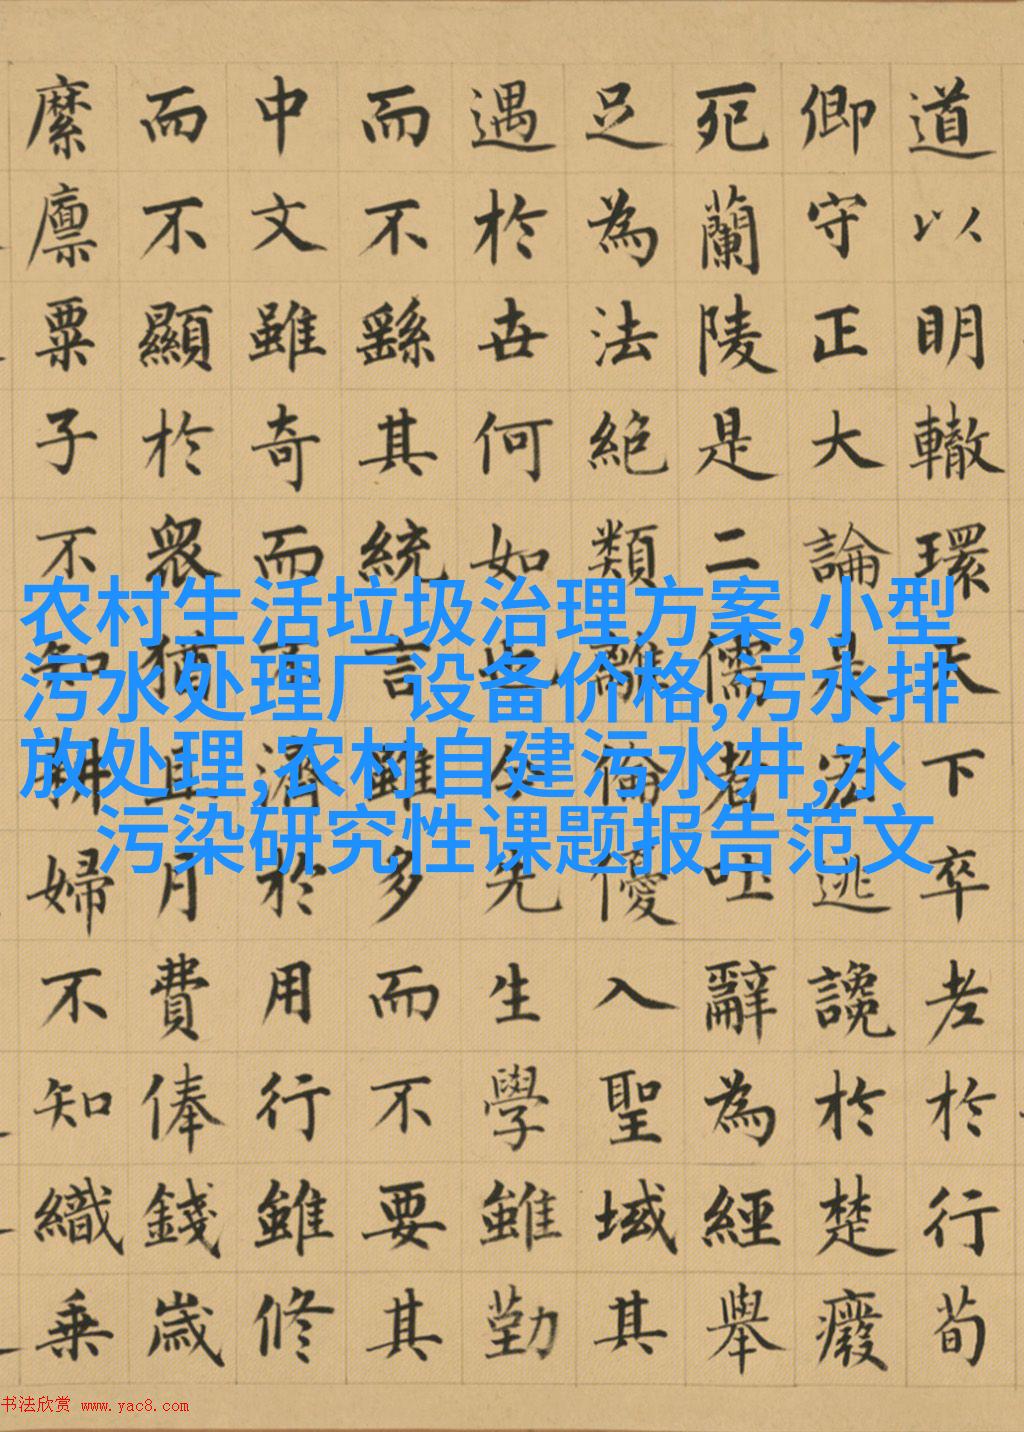 道以明轍環天下卒老於行荀
卿守正大論是弘逃讒於楚廢
死蘭陵是二儒者吐辭為經舉
足為法絕類離倫優入聖域其
遇於世何如也今先生學雖勤
而不繇其統言雖多而不要其
中文雖奇而不濟於用行雖修
而不顯於衆猶且月費俸錢歲
縻廩粟子不知耕婦不知織乗
农村生活垃圾治理方案,小型
污水处理厂设备价格,污水排
放处理,农村自建污水井,水
污染研究性课题报告范文
书法欣赏 www.yac8.com